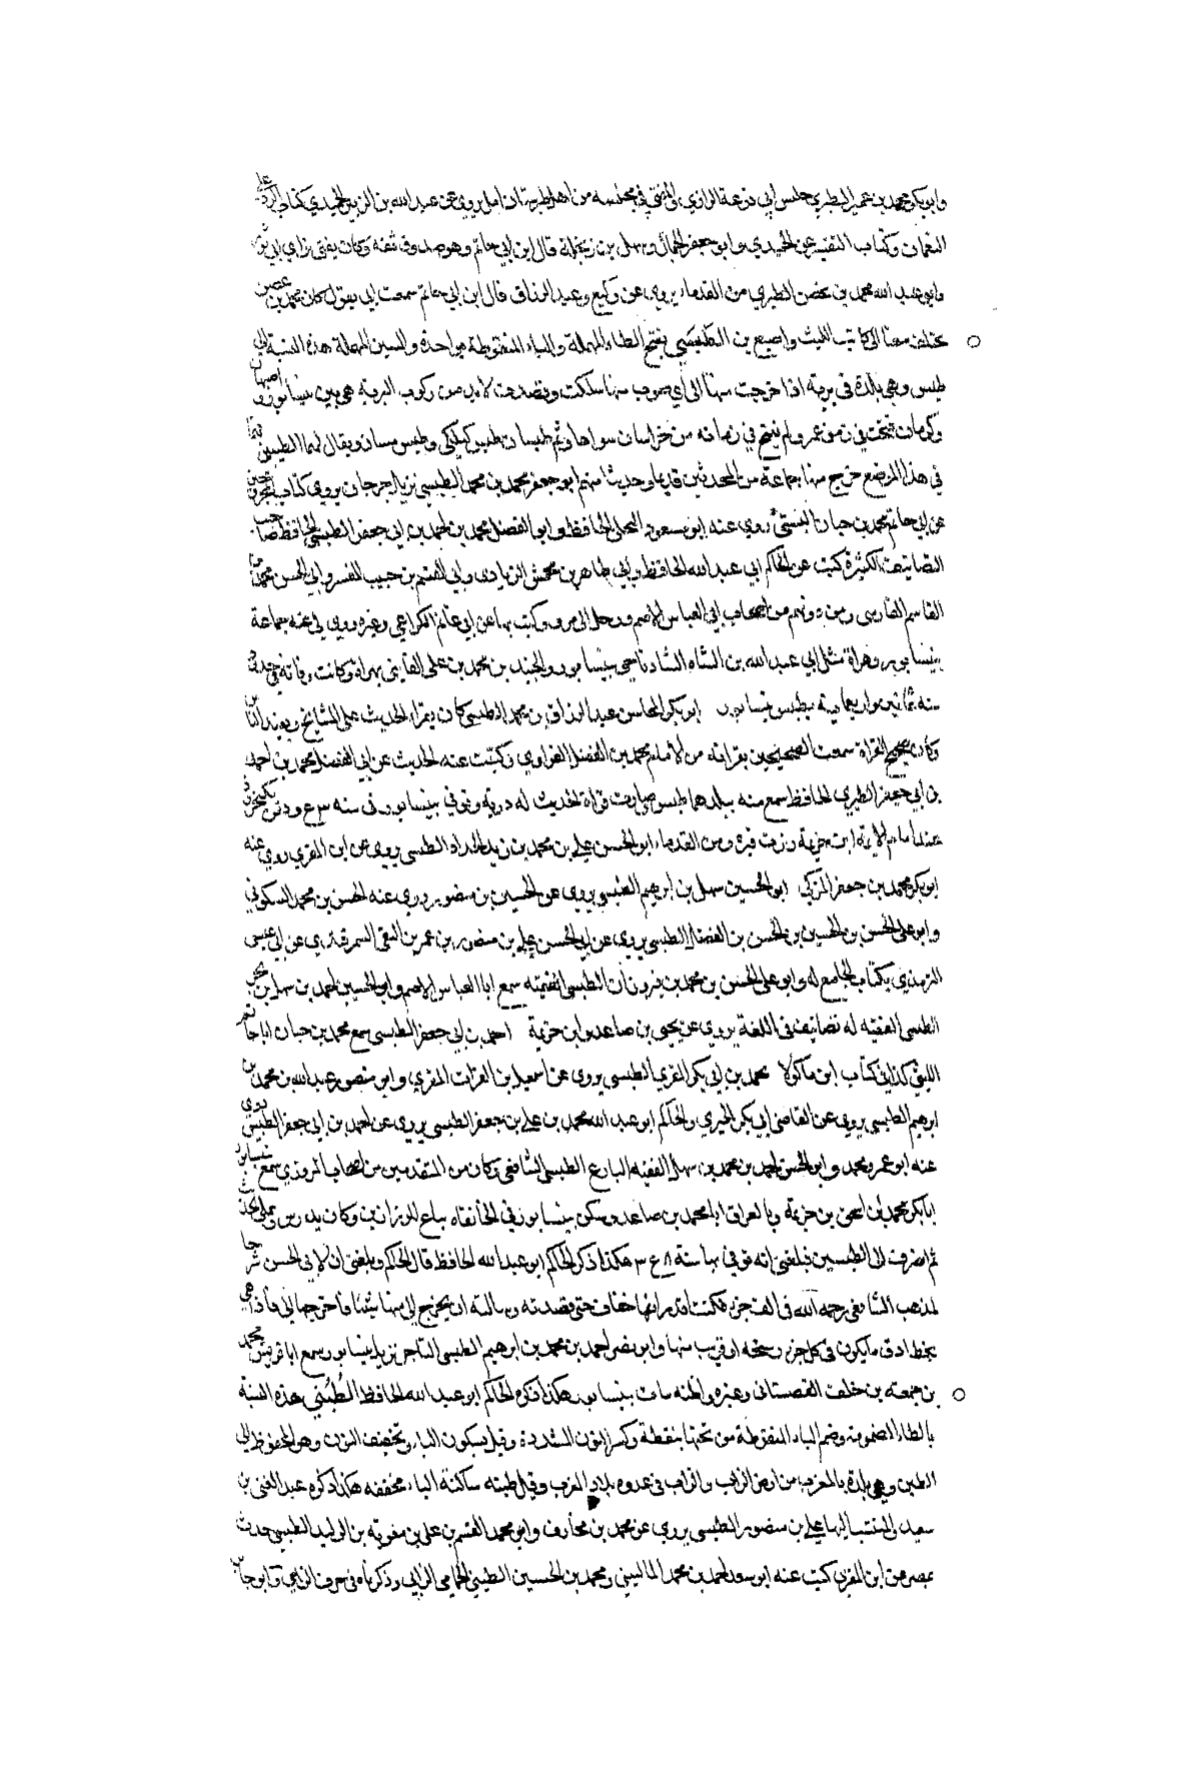 وابو بكر محمد بن عمير الطبري جليس ابي زرعة الرازي والمفتي في مجلسه من اهل طبرستان يروي عن عبد الله بن الزبير الحميدي كتاب الرد على
النعمان وكتاب التفسير عن الحميدي وابو جعفر الجمال وسهل بن زنجلة قال ابن ابي حاتم وهو صدوق ثقة وكان يفتي براي ابي ثور
وابو عبد الله محمد بن غصن الطبري من القدماء يروي عن وكيع وعبد الرزاق قال ابن ابي حاتم سمعت ابي يقول كان محمد بن غصن
يختلف معنا الى كاتب الليث واصبغ بن الطبسي بفتح الطاء المهملة والباء المنقوطة بواحدة والسين المهملة هذه النسبة الى
طبس وهي بلدة في برية اذا خرجت منها الى اي صوب منها سلكت وقصدت لا بد من ركوب البرية هي بين نيسابور واصبهان
وكرمان فتحت في زمن عمر ولم يفتح في زمانه من خراسان سواها وثم طبسان طبس كيلكي وطبس مسينان ويقال لهما الطبسين
في هذا الموضع خرج منها جماعة من المحدثين قديما وحديثا منهم ابو جعفر محمد بن محمد الطبسي نزيل جرجان يروي كتاب المجروحين
عن ابي حاتم محمد بن حبان البستي روى عنه ابو مسعود البجلي الحافظ وابو الفضل محمد بن احمد بن ابي جعفر الطبسي الحافظ صاحب
التصانيف الكثيرة كتب عن الحاكم ابي عبد الله الحافظ وابي طاهر بن محمش الزيادي وابي القسم بن حبيب المفسر وابي الحسن محمد بن
القاسم الفارسي ومن دونهم من اصحاب ابي العباس الاصم ورحل الى مرو وكتب بها عن ابي غانم الكراعي وغيره وروى لي عنه جماعة
بنيسابور وهراة مثل ابي عبد الله بن الشاه الشاذياخي بنيسابور والجنيد بن محمد بن علي القايني بهراة وكانت وفاته في حدود
سنة ثمانين واربعماية بطبس نيسابور ابو بكر المحاسن عبد الرزاق بن محمد الطبسي كان يقرا الحديث على المشايخ ويفيد الناس
وكان صحيح القراة سمعت الصحيحين بقراته من الامام محمد بن الفضل الفراوي وكتبت عنه الحديث عن ابي الفضل محمد بن احمد
بن ابي جعفر الطبري الحافظ سمع منه ببلدهما طبس وصارت قراة الحديث له دربة وتوفي في بنيسابور في سنه ودفن
عند امام الايمة ابن خزيمة وزرت قبره ومن القدماء ابو الحسن علي بن محمد بن زيد الحداد الطبسي يروي عن ابن المقري روى عنه
ابو بكر محمد بن جعفر المزكي ابو الحسين سهل بن ابرهيم الطبسي يروي عن الحسين بن منصور روى عنه الحسن بن محمد السكوني
وابو علي الحسن بن الحسين بن الحسن بن الفضل الطبسي يروي عن ابي الحسن علي بن منصور بن عمر بن التقي السمرقندي عن ابي عيسى
الترمذي بكتاب الجامع له وابو علي الحسن بن محمد بن فيروزان الطبسي الفقيه سمع ابا العباس الاصم وابو الحسين احمد بن سهل بن بحر
الطبسي الفقيه له تصانيف في اللغة يروي عن يحيى بن صاعد وابن خزيمة احمد بن ابي جعفر الطبسي سمع محمد بن حبان ابا حاتم
البستي كذا في كتاب ابن ماكولا محمد بن ابي بكر المقري الطبسي يروي عن اسمعيل بن الفرات المقري وابو منصور عبد الله بن محمد بن
ابرهيم الطبسي يروي عن القاضي ابي بكر الحيري والحاكم ابو عبد الله محمد بن علي بن جعفر الطبسي يروي عن احمد بن ابي جعفر الطبسي روى
عنه ابو عمرو محمد وابو الحسن احمد بن محمد بن سهل الفقيه البارع الطبسي الشافعي وكان من المتقدمين من اصحاب المروزي سمع بنيسابور
ابا بكر محمد بن اسحق بن خزيمة وبالعراق ابا محمد بن صاعد وسكن بنيسابور في الخانقاه بباع الوزازين وكان يدرس ويملي الحديث
ثم انصرف الى الطبسين فبلغني انه توفي بها سنة هكذا ذكر الحاكم ابو عبد الله الحافظ قال الحاكم وبلغني ان لابي الحسن شرحا
لمذهب الشافعي رحمه الله في الف جزء فكنت اقدر انها خفاف حتى قصدته وسالته ان يخرج الي منها شيئا فاخرجها الي فاذا هي
بخط ادق ما يكون في كل جزء دستجه او قريب منها وابو نصر احمد بن محمد بن ابرهيم الطبسي التاجر نزيل نيسابور سمع ابا قريش محمد
بن جمعة بن خلف القهستاني وغيره واظنه مات بنيسابور هكذا ذكره الحاكم ابو عبد الله الحافظ الطُبُنّي هذه النسبة
بالطاء المضمومة وضم الباء المنقوطة من تحتها بنقطة وكسر النون المشددة وقيل بسكون الباء وتخفيف النون وهو المحفوظ الى
الطبن وهي بلدة بالمغرب من ارض الزاب والزاب في عدوه بلاد المغرب وقيل طبنه ساكنة الباء مخففه هكذا ذكره عبد الغني بن
سعيد والمنتسب اليها علي بن منصور الطبسي يروي عن محمد بن مخارق وابو محمد القسم بن علي بن معوية بن الوليد الطبسي حدث
بمصر عن ابن المقري كتب عنه ابو سعد احمد بن محمد الماليني ومحمد بن الحسين الطبني الحمامي الزابي وذكرناه في حرف الزاي وابو